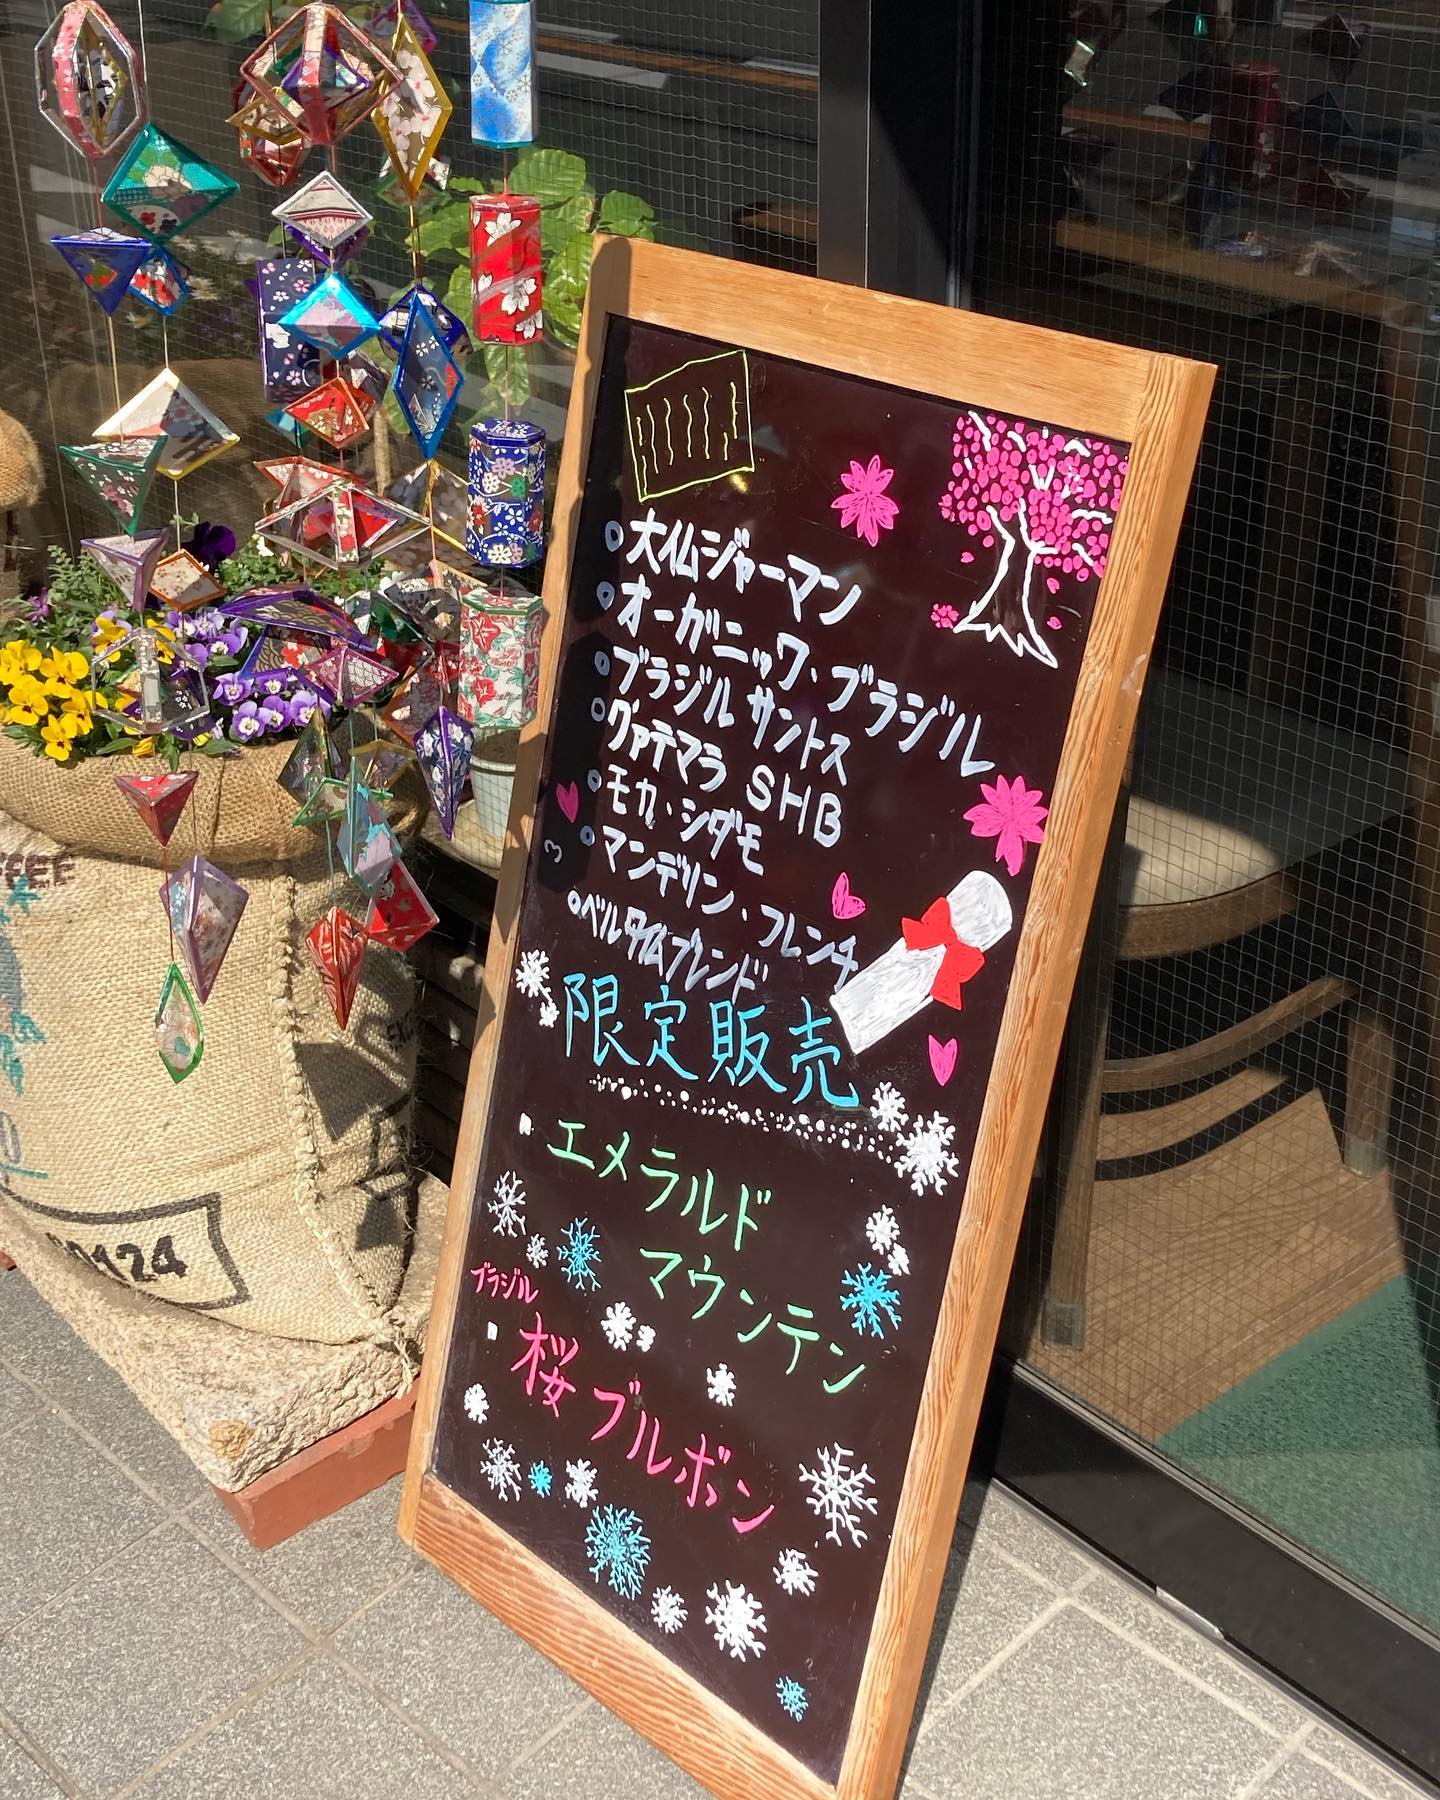 大仏ジャーマン
オーガニック、ブラジル
ブラジル サントス
グァテマラ SHB
モカ、シダモ
マンデリン、フレンチ
ベルタイムブレンド
限定販売
エメラルド
マウンテン
ブラジル
桜ブルボン